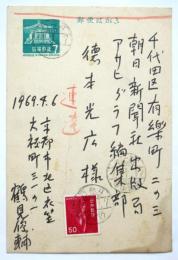 郵便はがき
7
千代田区有楽町二の三
朝日新聞社出版局
アサヒグラフ編集部
徳本光広様
速達
1969.4.6
京都市北区衣笠
大祓町三一の一
鶴見俊輔
50